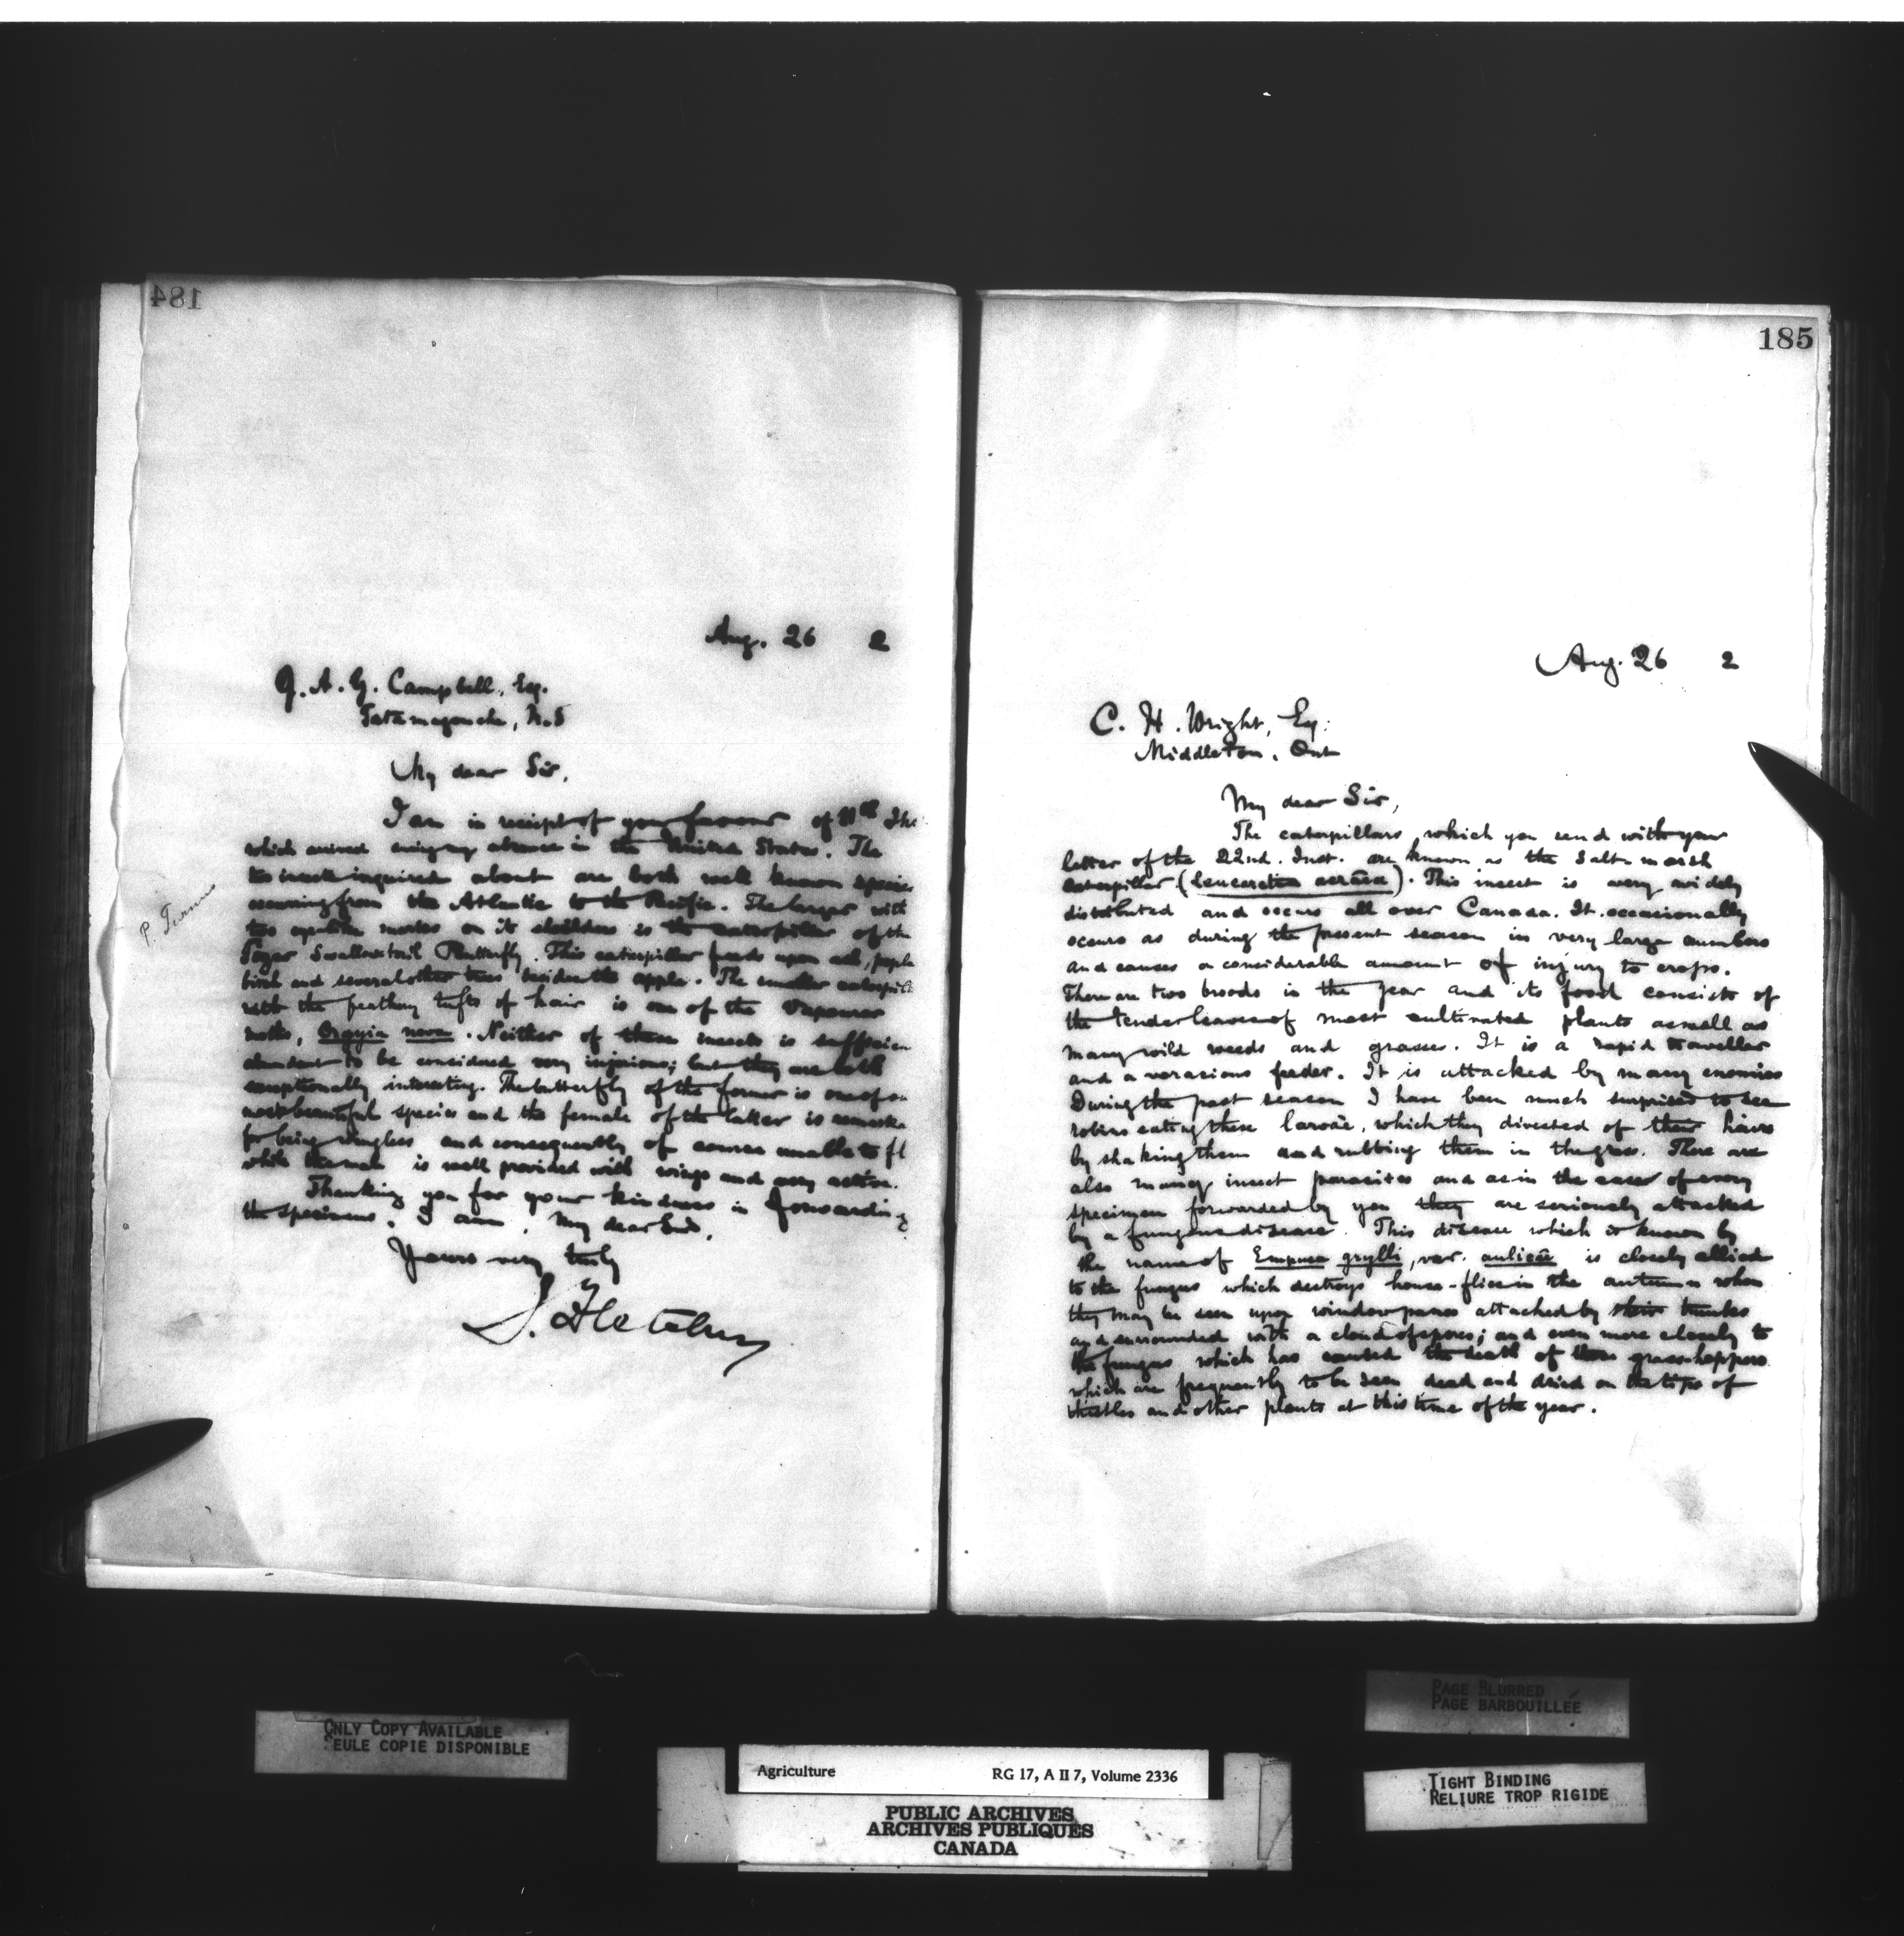 184
Aug. 26 2
J. A. G. Campbell, Esq.
Tatamagouche, N.S
My dear Sir,
I am in receipt of your favour of
which arrived during my absence in the United States. The
two insects inquired about are both well known species
occurring from the Atlantic to the Pacific. The larger with
two eye-like marks on its shoulders is the caterpillar of the
Swallow-tail Butterfly. This caterpillar feeds upon ash,
birch and several other trees besides the apple. The smaller
with the feathery tufts of hair is one of the Vapourer
moths, Orgyia nova. Neither of these insects is sufficien
abundant to be considered very injurious; but they are both
exceptionally interesting. The butterfly of the former is one of
most beautiful species and the female of the latter is
for being wingless and consequently of course unable to fl
while the male is well provided with wings and very active.
Thanking you for your kindness in forwarding
the specimens, I am, My dear Sir,
Yours very truly
J. Fletcher
P. Turnus
185
Aug. 26 2
C. H. Wright, Esq.
Middleton, Ont
My dear Sir,
The caterpillars, which you send with your
letter of the 22nd. Inst. are known as the Salt-marsh
caterpillar (Leucarctia acræa). This insect is very widely
distributed and occurs all over Canada. It occasionally
occurs as during the present season in very large numbers
and causes a considerable amount of injury to crops.
There are two broods in the year and its food consists of
the tender leaves of most cultivated plants as well as
many wild weeds and grasses. It is a rapid traveller
and a voracious feeder. It is attacked by many enemies
During the past season I have been much surprised to see
robins eating these larvae, which they divested of their hairs
by shaking them and rubbing them in the grass. There are
also many insect parasites and as in the case of every
specimen forwarded by you they are seriously attacked
by a fungus disease. This disease which is known by
the name of Empusa grylli, var. aulicæ is closely allied
to the fungus which destroys house-flies in the autumn when
they may be seen upon window panes attached by their trunks
and surrounded with a cloud of spores; and even more closely to
the fungus which has caused the death of the grasshoppers
which are frequently to be seen dead and dried on the tips of
thistles and other plants at this time of the year.
ONLY COPY AVAILABLE
SEULE COPIE DISPONIBLE
PAGE BLURRED
PAGE BARBOUILLÉE
TIGHT BINDING
RELIURE TROP RIGIDE
Agriculture RG 17, A II 7, Volume 2336
PUBLIC ARCHIVES
ARCHIVES PUBLIQUES
CANADA